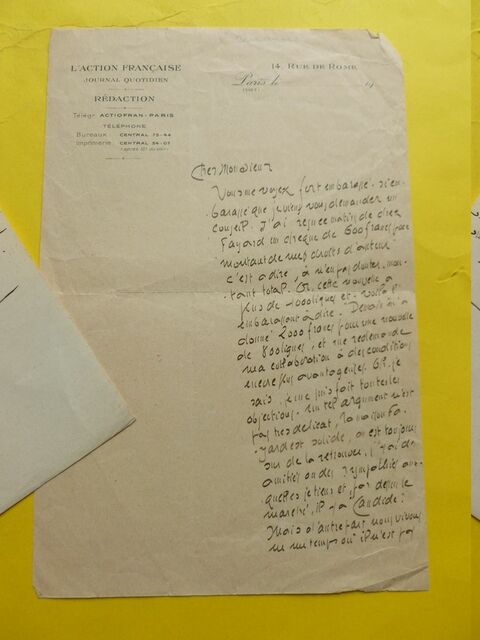 L'ACTION FRANÇAISE
JOURNAL QUOTIDIEN
RÉDACTION
Télégr. ACTIOFRAN-PARIS
TÉLÉPHONE
Bureaux: CENTRAL
Imprimerie CENTRAL
14, RUE DE ROME
Paris le 19
Cher Monsieur
Vous me voyez fort embarassé. Si em-
barassé que je viens vous demander un
conseil. J'ai reçu ce matin de chez
Fayard un chèque de 600 francs pour
montant de mes droits d'auteur.
c'est à dire, à n'en pas douter, mon-
tant total. Or, cette nouvelle a
plus de lignes et voilà l'
embarassant à dire: m'a
donné 2000 francs pour une nouvelle
de 800 lignes, et me redemande
ma collaboration à des conditions
encore plus avantageuses. Oh! je
sais, je me puis fait toutes les
objections. Un tel argument n'est
pas très délicat, la maison Fa-
yard est solide, on est toujours
sûr de la retrouver, j'ai des
amitiés ou des sympathies aux-
quelles je tiens et, par dessus le
marché, il y a Candide!
Mais d'autre part nous vivons
en un temps où il n'est pas